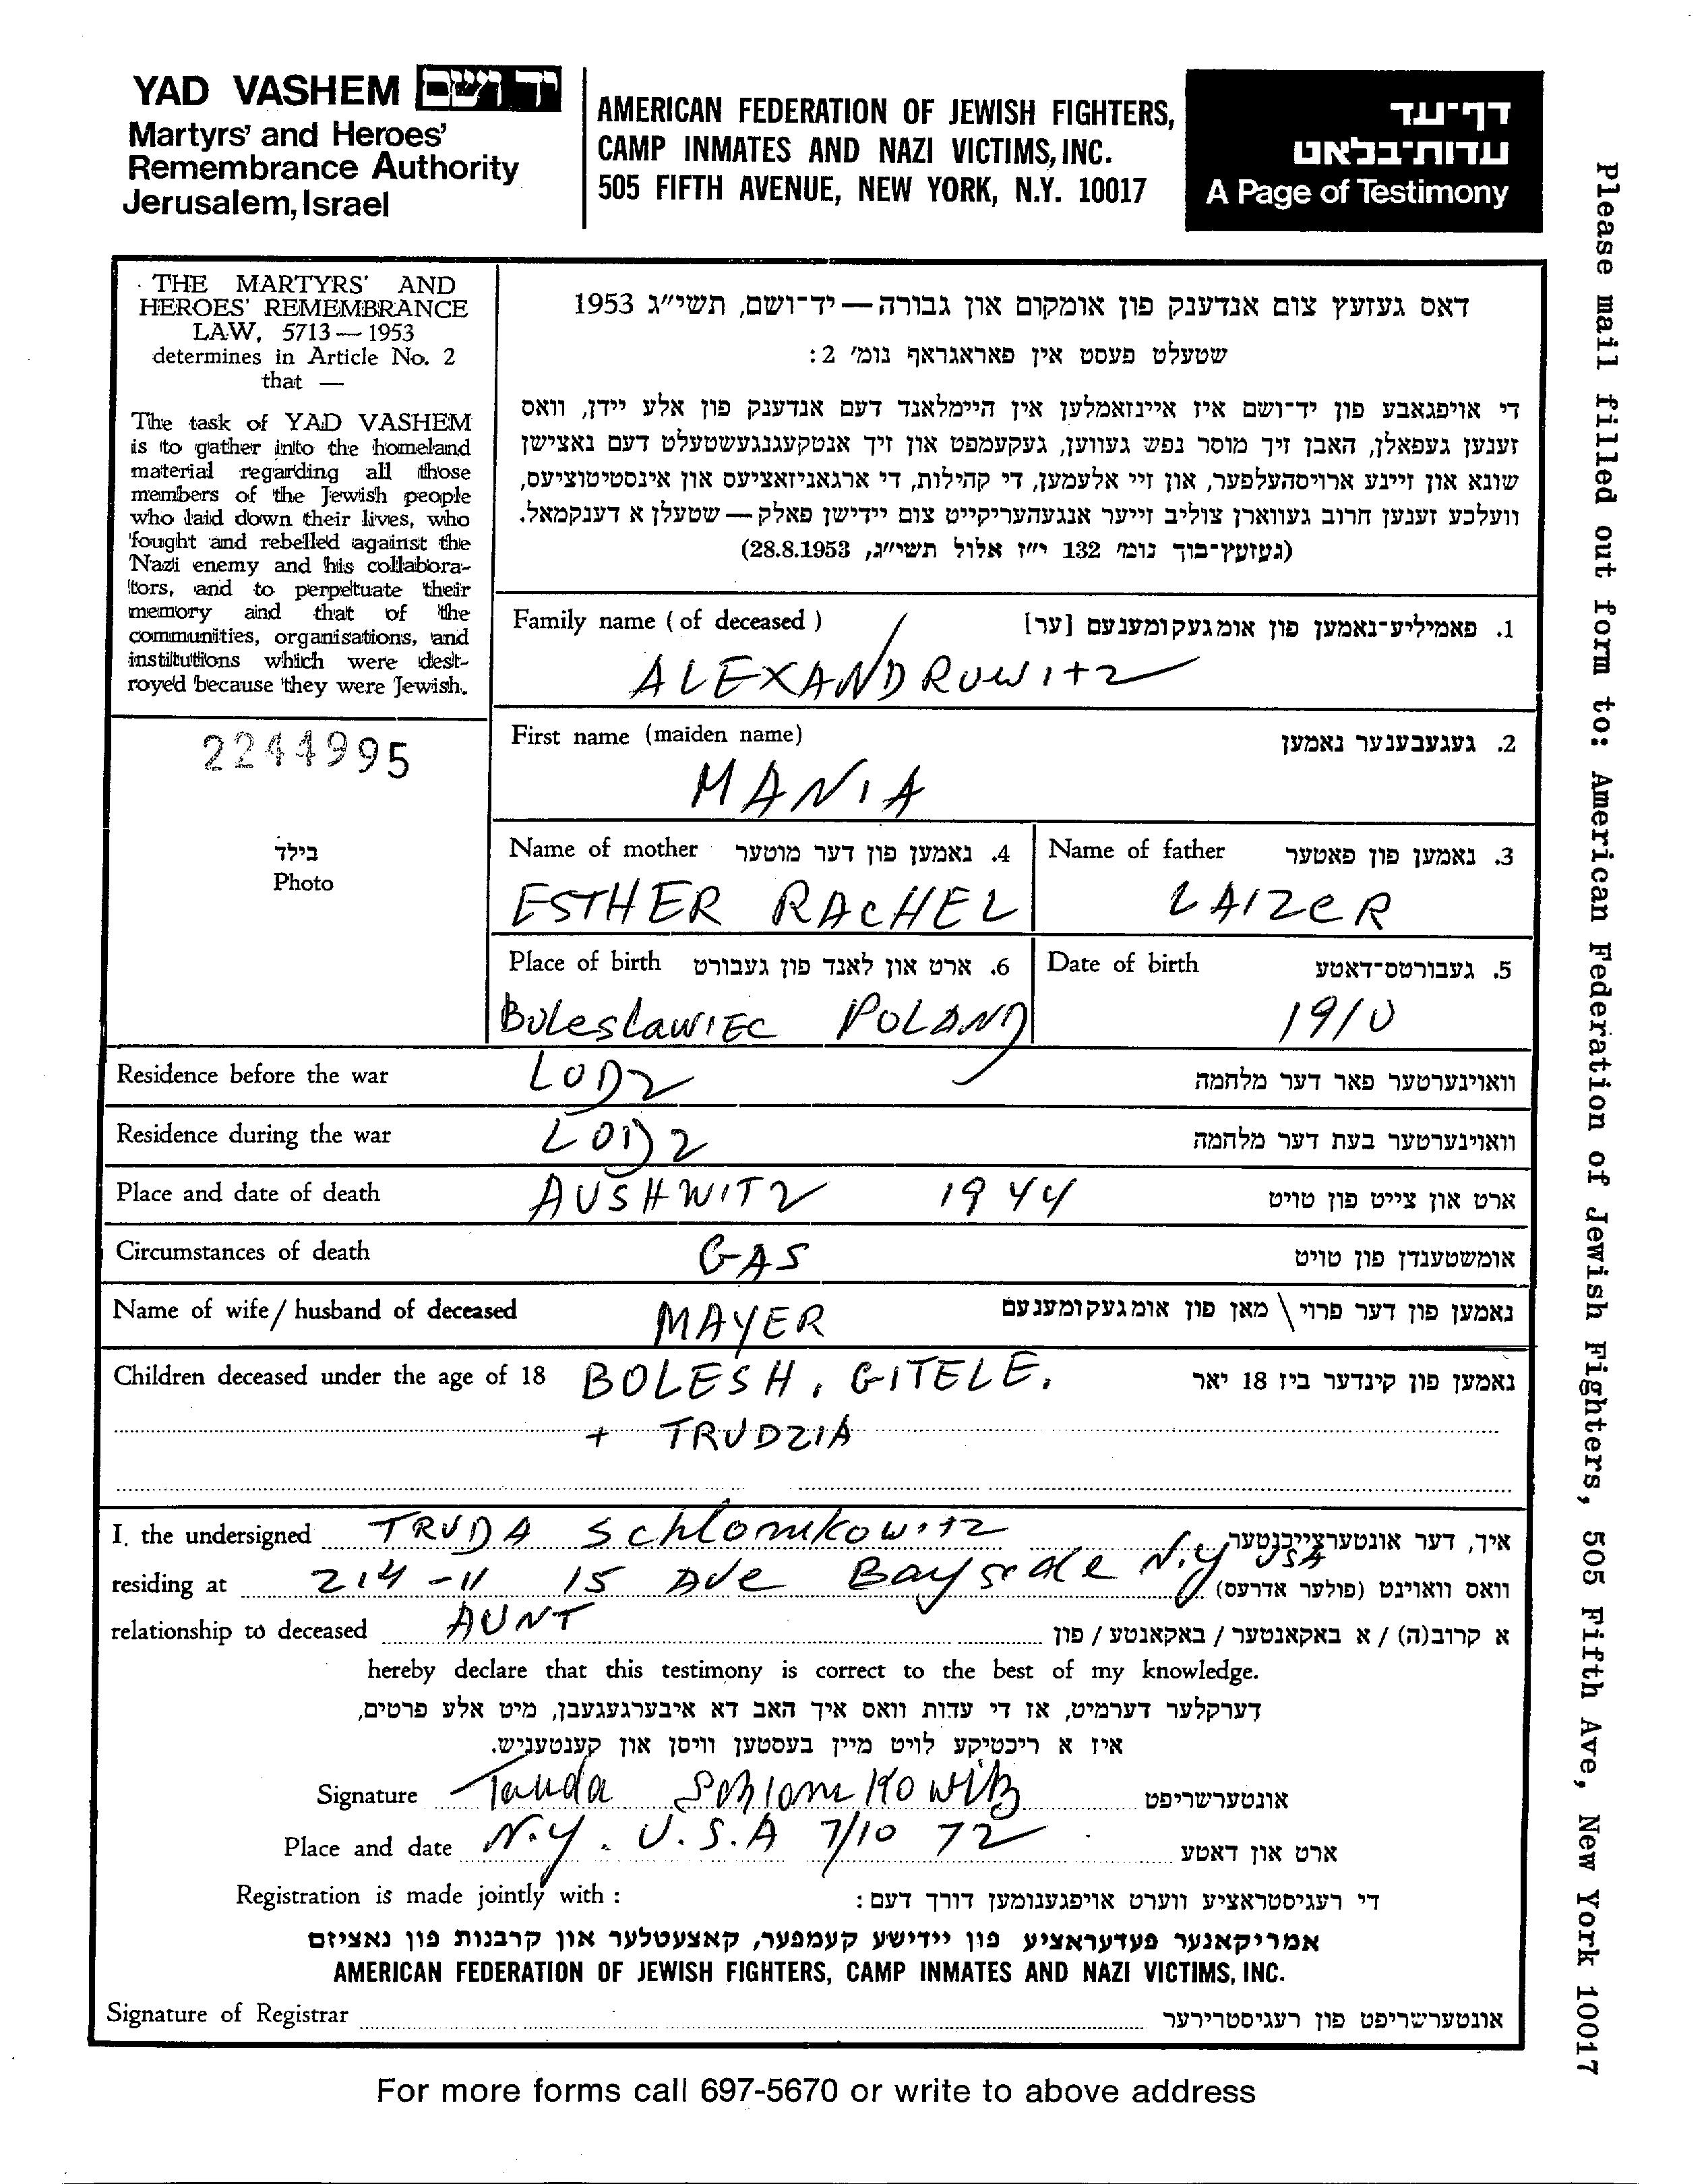 YAD VASHEM יד ושם
Martyrs' and Heroes'
Remembrance Authority
Jerusalem, Israel
AMERICAN FEDERATION OF JEWISH FIGHTERS,
CAMP INMATES AND NAZI VICTIMS, INC.
505 FIFTH AVENUE, NEW YORK, N.Y. 10017
דף־עד
עדות־בלאט
A Page of Testimony
Please mail filled out form to: American Federation of Jewish Fighters, 505 Fifth Ave, New York 10017
THE MARTYRS' AND
HEROES' REMEMBRANCE
LAW, 5713 — 1953
determines in Article No. 2
that —
The task of YAD VASHEM
is to gather into the homeland
material regarding all those
members of the Jewish people
who laid down their lives, who
fought and rebelled against the
Nazi enemy and his collabora-
tors, and to perpetuate their
memory and that of the
communities, organisations, and
institutions which were dest-
royed because they were Jewish.
דאס געזעץ צום אנדענק פון אומקום און גבורה — יד־ושם, תשי״ג 1953
שטעלט פעסט אין פאראגראף נומ׳ 2:
די אויפגאבע פון יד־ושם איז איינזאמלען אין היימלאנד דעם אנדענק פון אלע יידן, וואס
זענען געפאלן, האבן זיך מוסר נפש געווען, געקעמפט און זיך אנטקעגנגעשטעלט דעם נאצישן
שונא און זיינע ארויסהעלפער, און זיי אלעמען, די קהילות, די ארגאניזאציעס און אינסטיטוציעס,
וועלכע זענען חרוב געווארן צוליב זייער אנגעהעריקייט צום יידישן פאלק — שטעלן א דענקמאל.
(געזעץ־בוך נומ׳ 132 י״ז אלול תשי״ג, 28.8.1953)
2244995
בילד
Photo
Family name (of deceased) 1. פאמיליע־נאמען פון אומגעקומענעם [ער]
ALEXANDROWITZ
First name (maiden name) 2. געגעבענער נאמען
MANIA
Name of mother 4. נאמען פון דער מוטער
ESTHER RACHEL
Name of father 3. נאמען פון פאטער
LAIZER
Place of birth 6. ארט און לאנד פון געבורט
Boleslawiec POLAND
Date of birth 5. געבורטס־דאטע
1910
Residence before the war LODZ וואוינערטער פאר דער מלחמה
Residence during the war LODZ וואוינערטער בעת דער מלחמה
Place and date of death AUSHWITZ 1944 ארט און צייט פון טויט
Circumstances of death GAS אומשטענדן פון טויט
Name of wife / husband of deceased MAYER נאמען פון דער פרוי \ מאן פון אומגעקומענעם
Children deceased under the age of 18 BOLESH, GITELE, נאמען פון קינדער ביז 18 יאר
+ TRUDZIA
I, the undersigned TRUDA Schlomkowitz איך, דער אונטערצייכנטער
residing at 214-11 15 Ave Bayside N.Y USA וואס וואוינט (פולער אדרעס)
relationship to deceased AUNT א קרוב(ה) / א באקאנטער / באקאנטע / פון
hereby declare that this testimony is correct to the best of my knowledge.
דערקלער דערמיט, אז די עדות וואס איך האב דא איבערגעגעבן, מיט אלע פרטים,
איז א ריכטיקע לויט מיין בעסטען וויסן און קענטעניש.
Signature Truda Schlomkowitz אונטערשריפט
Place and date N.Y. U.S.A 7/10 72 ארט און דאטע
Registration is made jointly with : די רעגיסטראציע ווערט אויפגענומען דורך דעם:
אמריקאנער פעדעראציע פון יידישע קעמפער, קאצעטלער און קרבנות פון נאציזם
AMERICAN FEDERATION OF JEWISH FIGHTERS, CAMP INMATES AND NAZI VICTIMS, INC.
Signature of Registrar אונטערשריפט פון רעגיסטרירער
For more forms call 697-5670 or write to above address